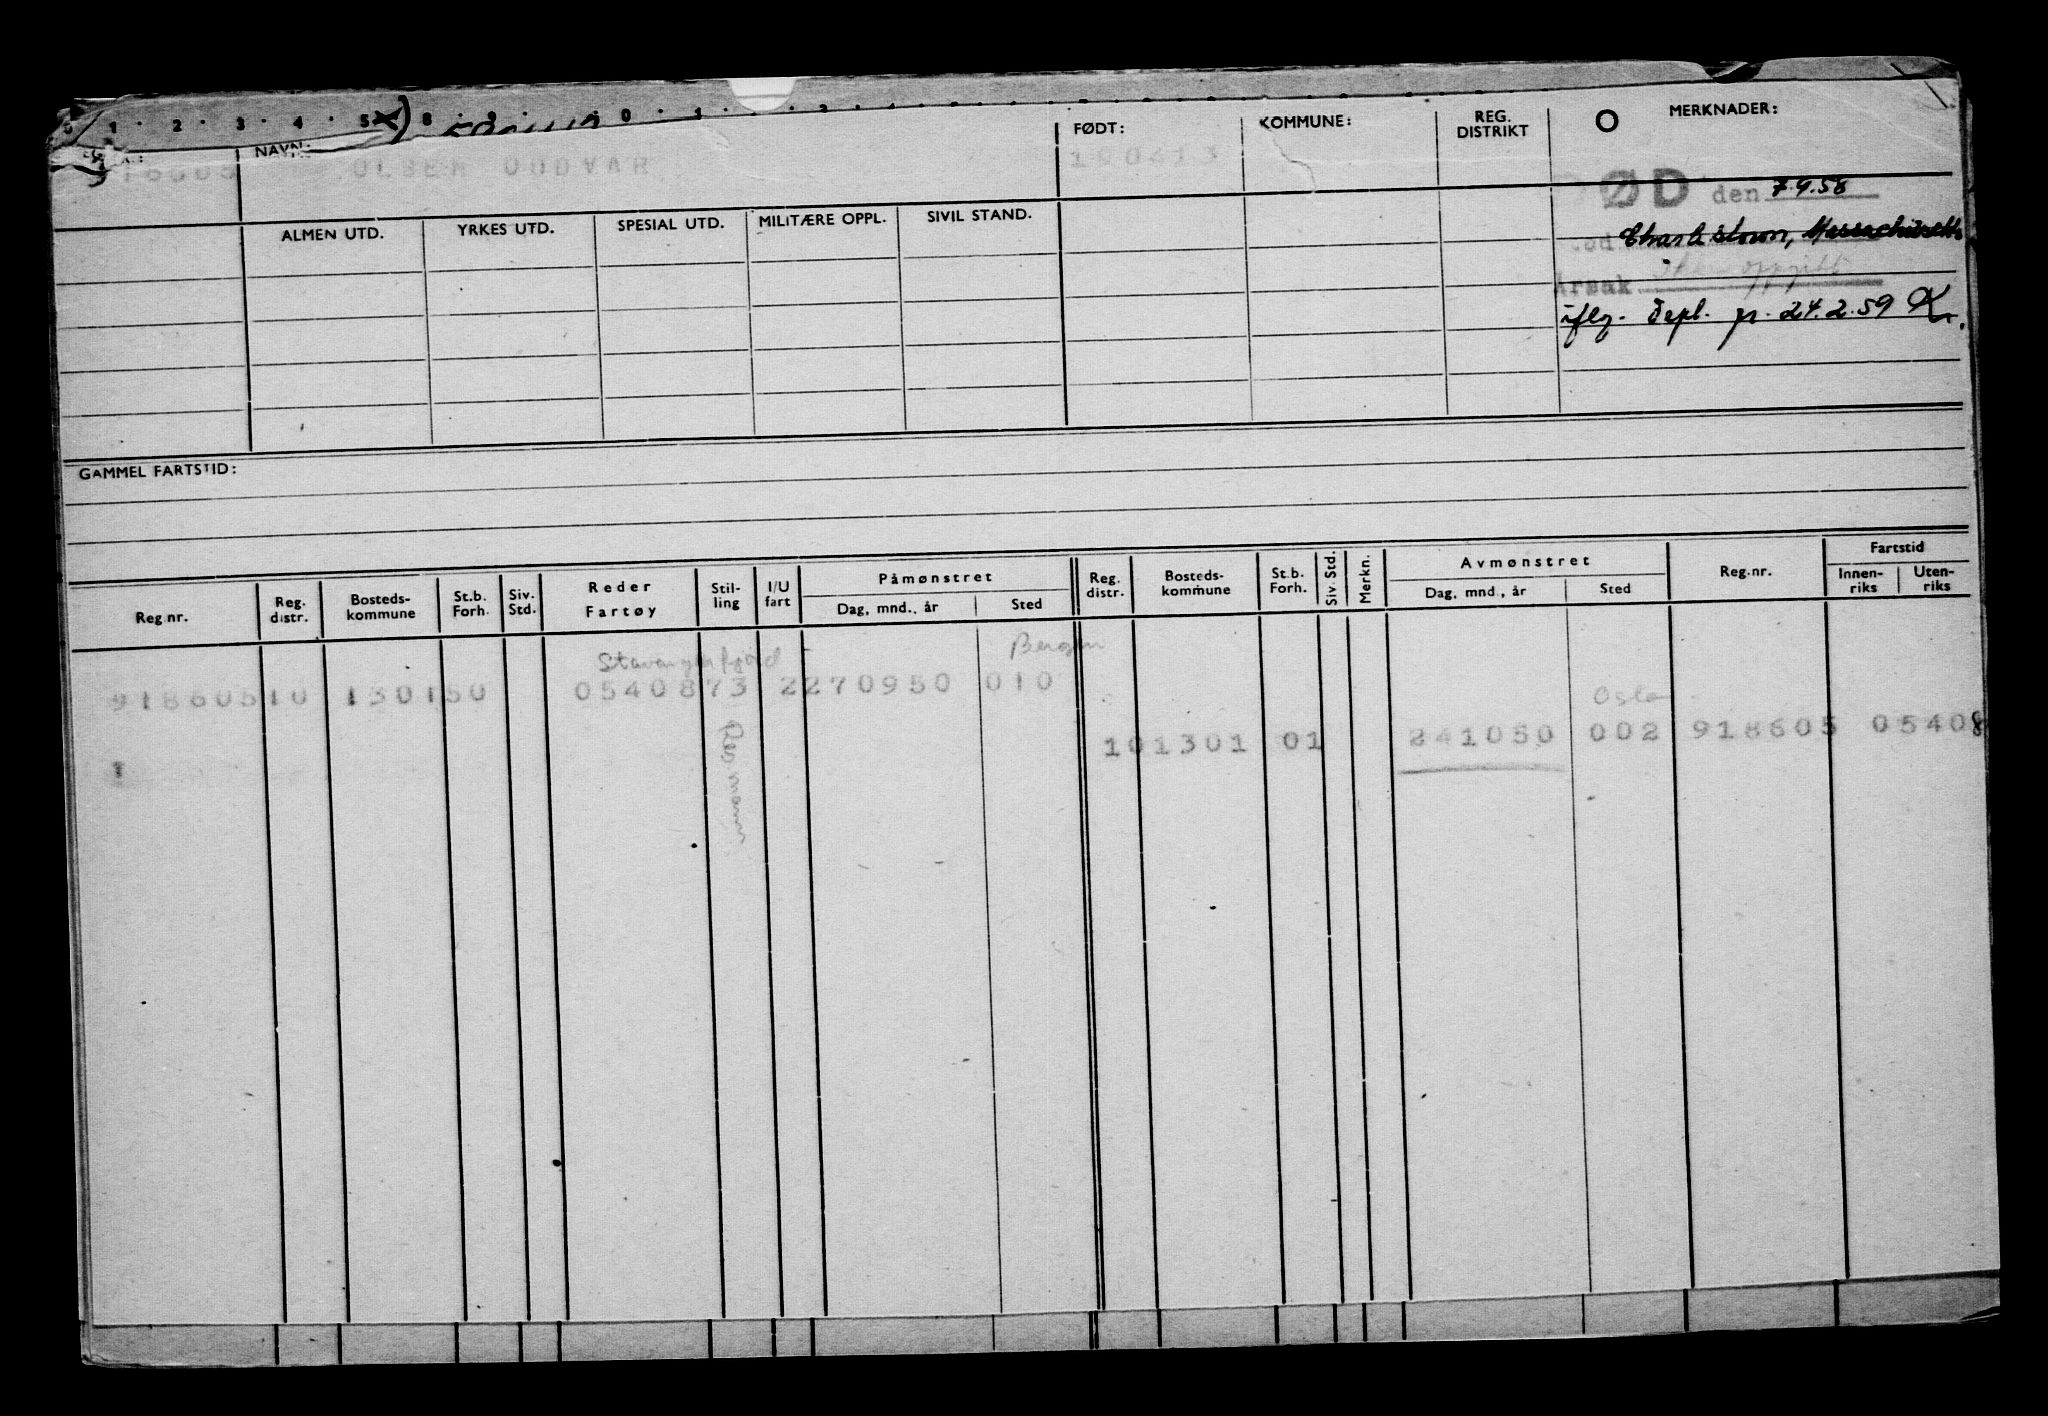 1 · 2 · 3 · 4 · 5
NAVN:
FØDT:
KOMMUNE:
REG. DISTRIKT
MERKNADER:
OLSEN ODDVAR
DØD den 7.9.58
ALMEN UTD. YRKES UTD. SPESIAL UTD. MILITÆRE OPPL. SIVIL STAND.
Charlestown, Massachusetts
Årsak Ikke oppgitt
iflg. Depl. pr. 24.2.59
GAMMEL FARTSTID:
Reg nr. Reg. distr. Bosteds- kommune St.b. Forh. Siv. Std. Reder Fartøy Stil- ling I/U fart Påmønstret Dag, mnd., år Sted Reg. distr. Bosteds- kommune St.b. Forh. Siv. Std. Merkn. Avmønstret Dag, mnd., år Sted Reg.nr. Fartstid Innen- riks Uten- riks
Stavangerfjord Bergen
91860510 130150 0540873 2270950 010
Oslo
101301 01 241050 002 918605 05408
1